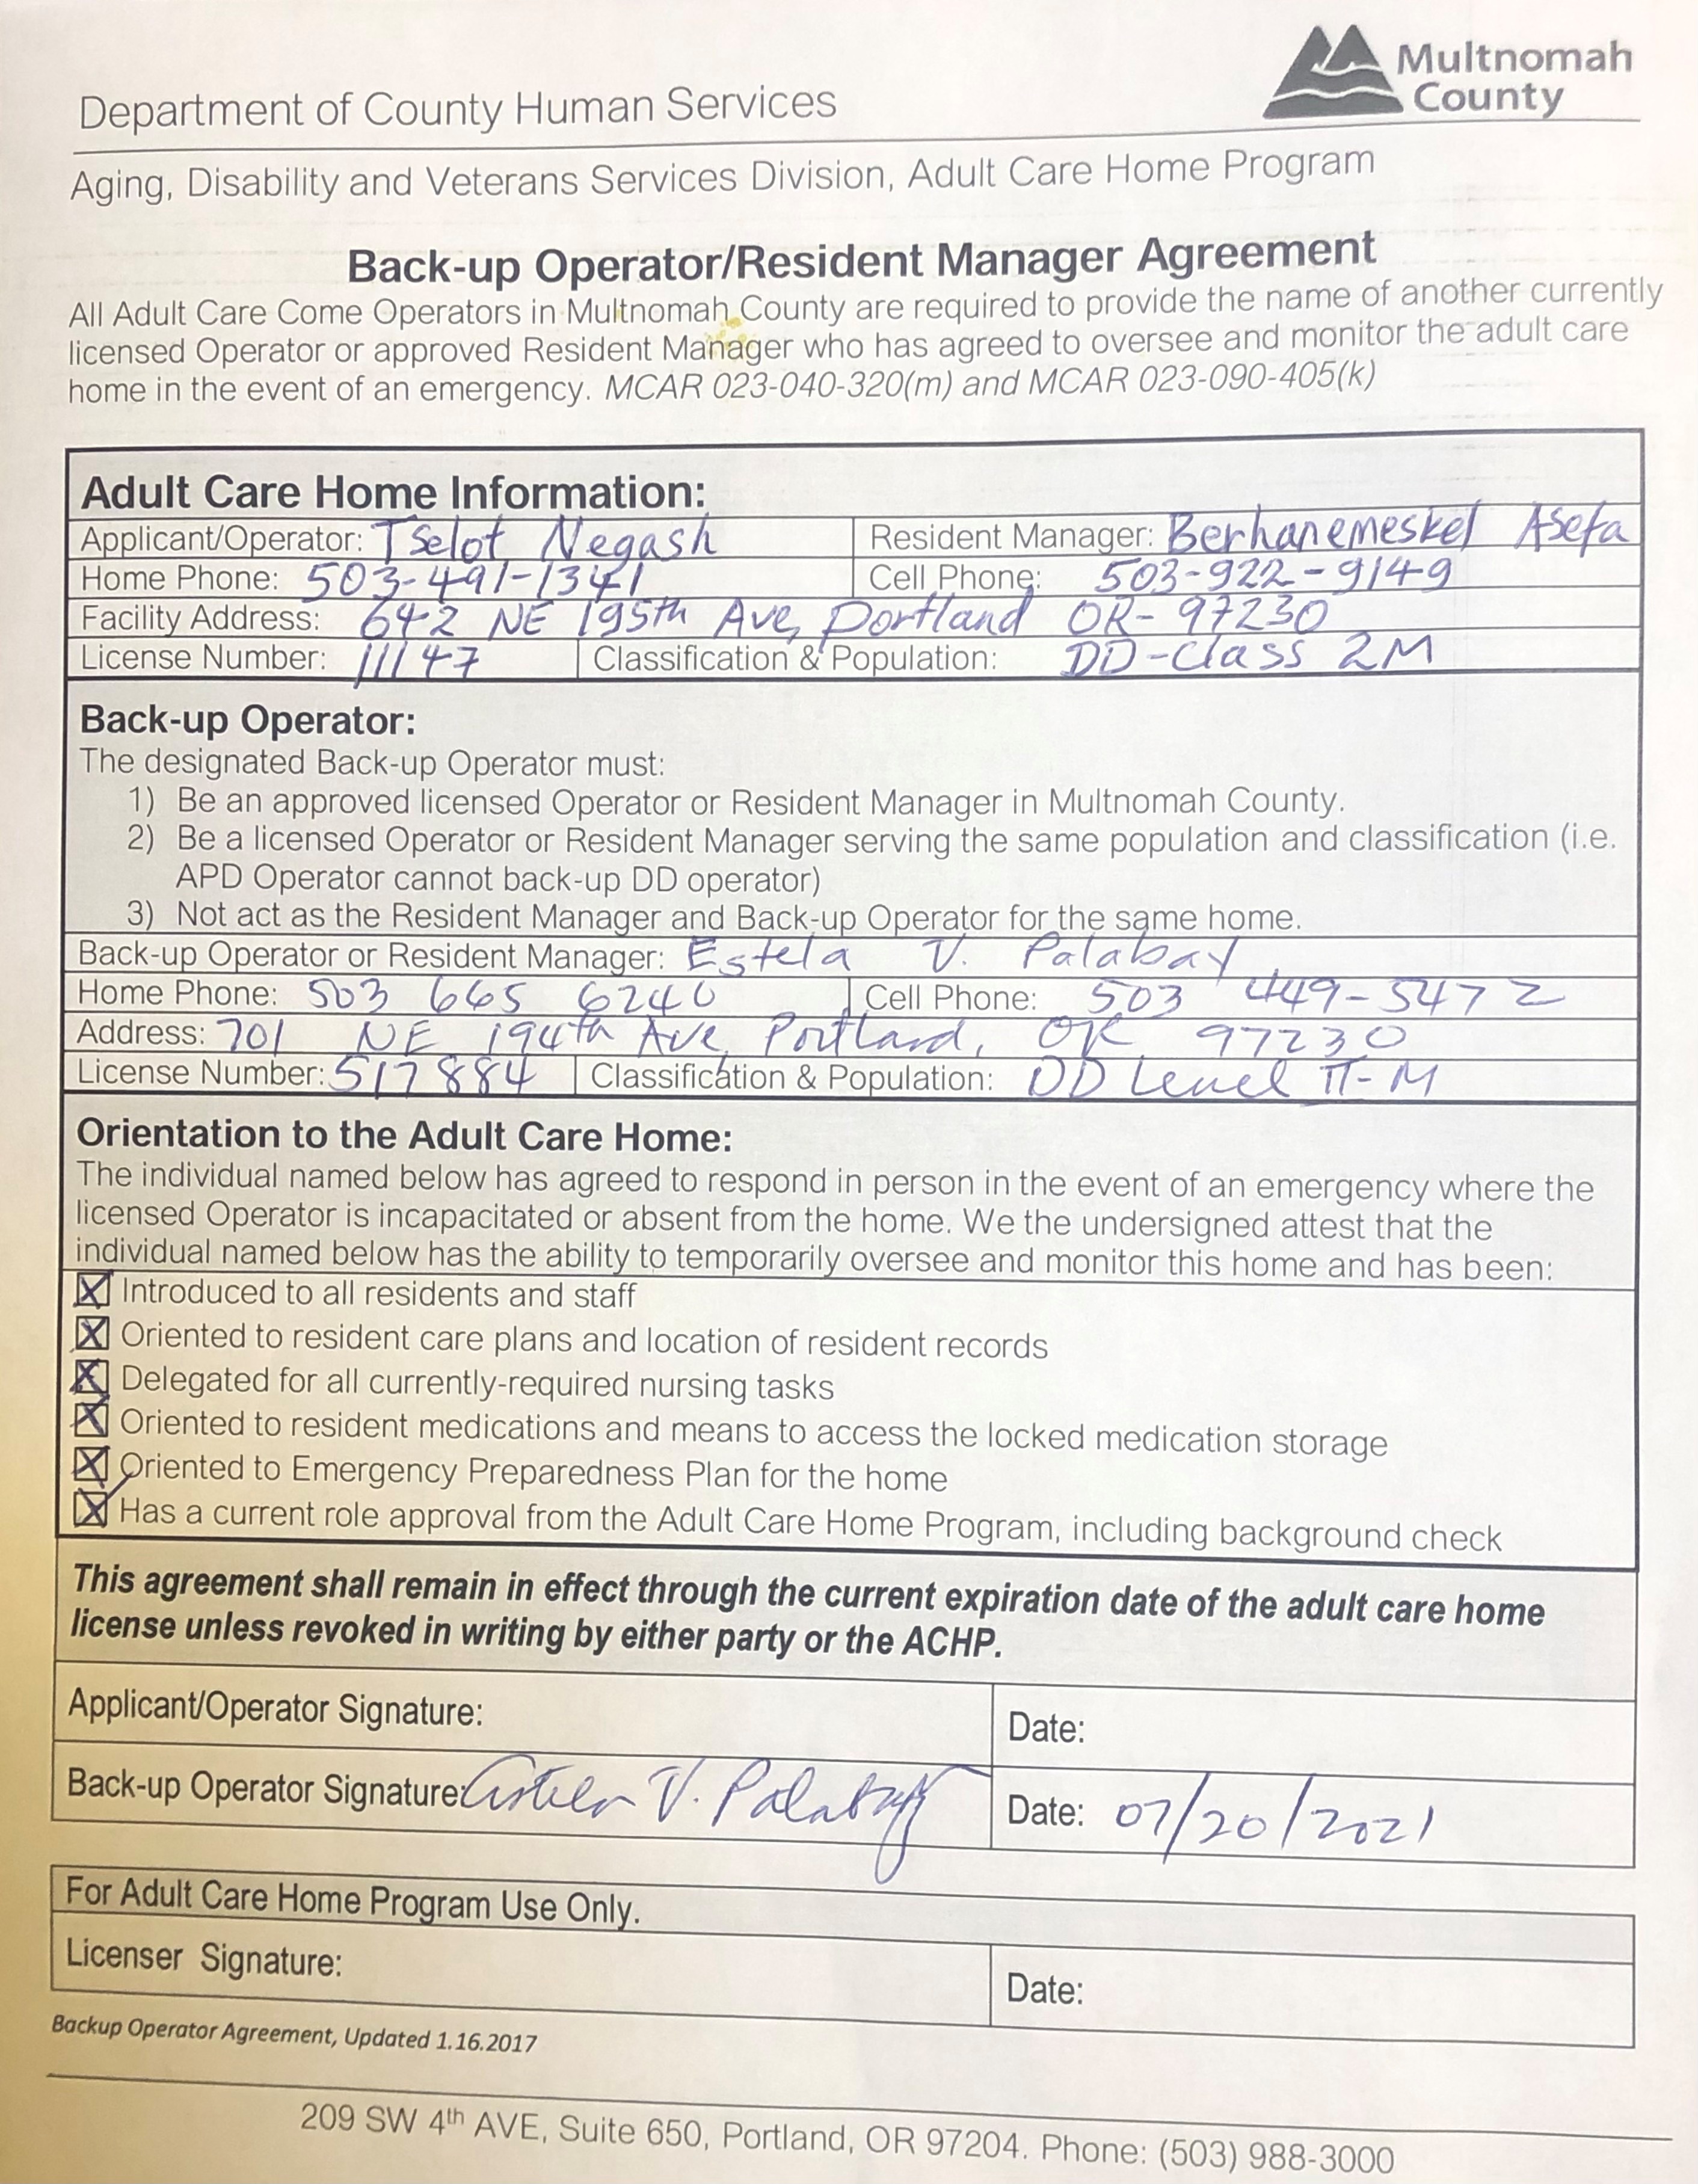 Multnomah
County
Department of County Human Services
Aging, Disability and Veterans Services Division, Adult Care Home Program
Back-up Operator/Resident Manager Agreement
All Adult Care Come Operators in Multnomah County are required to provide the name of another currently
licensed Operator or approved Resident Manager who has agreed to oversee and monitor the adult care
home in the event of an emergency. MCAR 023-040-320(m) and MCAR 023-090-405(k)
Adult Care Home Information:
Applicant/Operator: Tselot Negash Resident Manager: Berhanemeskel Asefa
Home Phone: 503-491-1341 Cell Phone: 503-922-9149
Facility Address: 642 NE 195th Ave, Portland OR-97230
License Number: 11147 Classification & Population: DD-Class 2M
Back-up Operator:
The designated Back-up Operator must:
1) Be an approved licensed Operator or Resident Manager in Multnomah County.
2) Be a licensed Operator or Resident Manager serving the same population and classification (i.e.
APD Operator cannot back-up DD operator)
3) Not act as the Resident Manager and Back-up Operator for the same home.
Back-up Operator or Resident Manager: Estela V. Palabay
Home Phone: 503 665 6240 Cell Phone: 503 449-5472
Address: 701 NE 194th Ave, Portland, OR 97230
License Number: 517884 Classification & Population: DD Level II-M
Orientation to the Adult Care Home:
The individual named below has agreed to respond in person in the event of an emergency where the
licensed Operator is incapacitated or absent from the home. We the undersigned attest that the
individual named below has the ability to temporarily oversee and monitor this home and has been:
Introduced to all residents and staff
Oriented to resident care plans and location of resident records
Delegated for all currently-required nursing tasks
Oriented to resident medications and means to access the locked medication storage
Oriented to Emergency Preparedness Plan for the home
Has a current role approval from the Adult Care Home Program, including background check
This agreement shall remain in effect through the current expiration date of the adult care home
license unless revoked in writing by either party or the ACHP.
Applicant/Operator Signature: Date:
Back-up Operator Signature: Estela V. Palabay Date: 07/20/2021
For Adult Care Home Program Use Only.
Licenser Signature: Date:
Backup Operator Agreement, Updated 1.16.2017
209 SW 4th AVE, Suite 650, Portland, OR 97204. Phone: (503) 988-3000